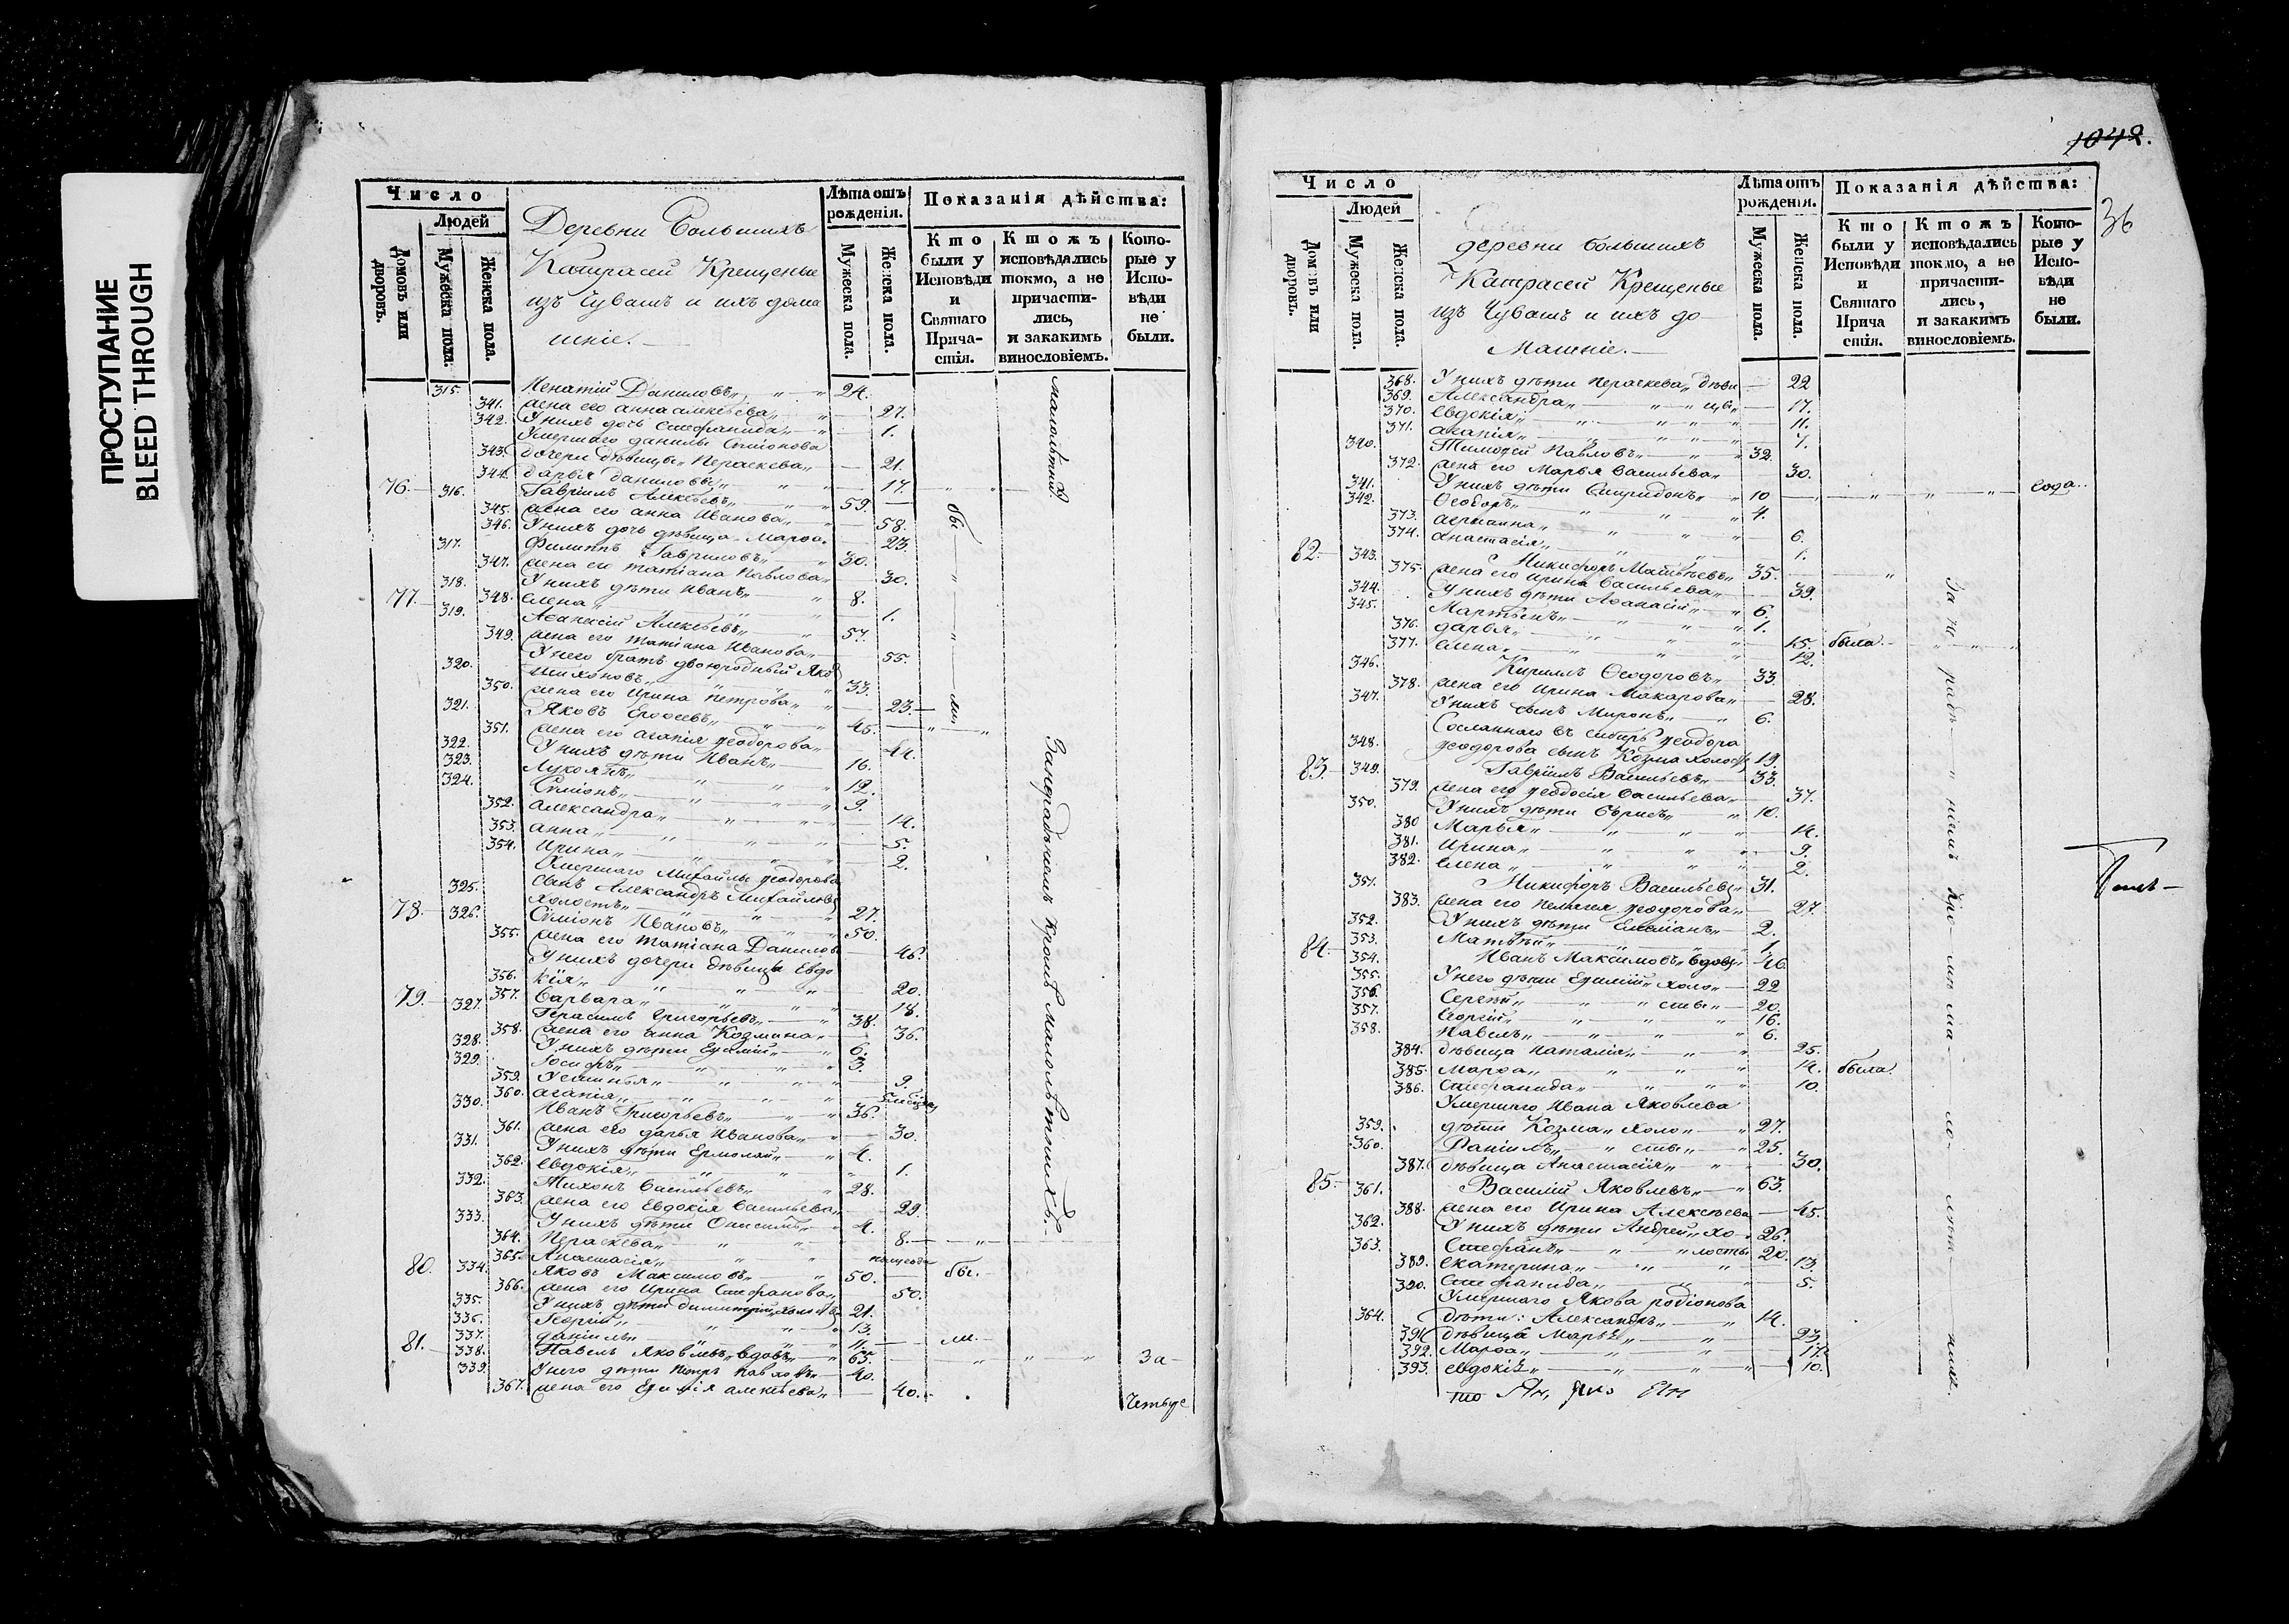 ПРОСТУПАНИЕ
BLEED THROUGH
Число
Людей
Домовъ или дворовъ.
Мужеска пола.
Женска пола.
Деревни Большихъ
Катрасей Крещеные
изъ Чувашъ и ихъ дома
шніе.
Лѣта отъ рожденія.
Мужеска пола.
Женска пола.
Показанія дѣйства:
Кто были у Исповѣди и Святаго Прича-стія.
Ктожъ исповѣдались токмо, а не причасти-лись, и закакимъ винословіемъ.
Кото-рые у Испо-вѣди не были.
315. Игнатій Даниловъ 24.
341. жена его анна алексѣева 27.
342. У нихъ дочь Стефанида 1.
Умершаго данилы Симіонова
343. дочери дѣвицы Параскева 21.
344. дарья данилова 17.
76. 316. Гавріилъ Алексѣевъ 59.
345. жена его анна Иванова 58.
346. У нихъ дочь дѣвица Марѳа 23.
317. Филиппъ Гавриловъ 30.
347. жена его татіана Павлова 30.
318. У нихъ дѣти Иванъ 8.
348. Елена 1.
77. 319. Аѳанасій Алексѣевъ 57.
349. жена его татіана Иванова 55.
У него братъ двоюродный Яко
320. Тихоновъ 33.
350. жена его Ирина Петрова 23.
321. Яковъ Ероѳеевъ 45.
351. жена его агапія Ѳеодорова 44.
322. У нихъ дѣти Иванъ 16.
323. Лукоянъ 12.
324. Симіонъ 9.
352. Александра 14.
353. анна 5.
354. Ирина 2.
Умершаго Михайлы Ѳеодорова
325. сынъ Александръ Михайловъ
холостъ 27.
78. 326. Симіонъ Ивановъ 50.
355. жена его татіана Данилов 46.
У нихъ дочери дѣвицы Евдо
356. кія 20.
357. Варвара 18.
79. 327. Герасимъ Григорьевъ 38.
358. жена его анна Козмина 36.
328. У нихъ дѣти Еѵѳимій 6.
329. Іосифъ 3.
359. Устинья 9.
360. агапія
330. Иванъ Григорьевъ 36.
361. жена его дарья Иванова 30.
331. У нихъ дѣти Ермолай 4.
362. Евдокія 1.
332. Тихонъ Васильевъ 28.
363. жена его Евдокія Васильева 29.
333. У нихъ дѣти Онисимъ 4.
364. Параскева 8.
365. Анастасія
80. 334. Яковъ Максимовъ 50. бы.
366. жена его Ирина Стефанова 50.
335. У нихъ дѣти димитрій холостъ 21.
336. Георгій 13.
337. даніилъ 11. ли.
81. 338. Павелъ Яковлевъ вдовъ 65. За
339. У него дѣти Петръ Павловъ 40.
367. жена его Еѵѳимія алексѣева 40.
малолѣтних
бы.
ли
За нерадѣніемъ кромѣ малолѣтнихъ.
1042.
36
Число
Людей
Домовъ или дворовъ.
Мужеска пола.
Женска пола.
деревни Большихъ
Катрасей Крещеные
изъ Чувашъ и ихъ до
машніе.
Лѣта отъ рожденія.
Мужеска пола.
Женска пола.
Показанія дѣйства:
Кто были у Исповѣди и Святаго Прича стія.
Ктожъ исповѣдались токмо, а не причасти-лись, и закакимъ винословіемъ.
Кото-рые у Испо-вѣди не были.
368. У нихъ дѣти Параскева дѣви 22
369. Александра цы 17.
370. Евдокія 11.
371. агапія 7.
340. Тимоѳей Павловъ 32.
372. жена его Марья Васильева 30.
341. У нихъ дѣти Спиридонъ 10 года.
342. Ѳеодоръ 4.
373. 6.
374. анастасія 1.
82. 343. Никифоръ Матвѣевъ 35.
375. жена его Ирина Васильева 39.
344. У нихъ дѣти Аѳанасій 6.
345. Мартынъ 1.
376. дарья 15. была.
377. Елена 12.
346. Кириллъ Ѳеодоровъ 33.
378. жена его Ирина Макарова 28.
347. У нихъ сынъ Миронъ 6.
Сосланнаго въ сибирь Ѳеодора
348. Ѳеодорова сынъ Козма холостъ 19.
83. 349. Гавріилъ Васильевъ 33.
379. жена его Ѳеодосія Васильева 37.
350. У нихъ дѣти Борисъ 10.
380 Марья 14.
381. Ирина 9.
382. Елена 2.
351. Никифоръ Васильевъ 31.
383. жена его Пелагея Ѳеодорова 27.
352. У нихъ дѣти Емеліанъ 2.
353. Матвѣй 1.
84. 354. Иванъ Максимовъ вдовъ 46.
355. У него дѣти Еѵѳимій холо 22
356. Сергѣй сты 20.
357. Георгій 16.
358. Павелъ 6.
384. дѣвица Наталія 25.
385. Марѳа 14. была.
386. Стефанида 10.
Умершаго Ивана Яковлева
359. дѣти Козма холо 27.
360. Даніилъ сты 25.
387. дѣвица Анастасія 30.
85. 361. Василій Яковлевъ 63.
388. жена его Ирина Алексѣева 45.
362. У нихъ дѣти Андрей хо 26.
363. Стефанъ лосты 20.
389. Екатерина 13.
390. Стефанида 5.
Умершаго Якова родіонова
364. дѣти: Александръ 14.
391. дѣвица Марья 23.
392. Марѳа 17.
393. евдокія 10.
За не радѣ ніемъ кро мѣ ма ло лѣт нихъ.